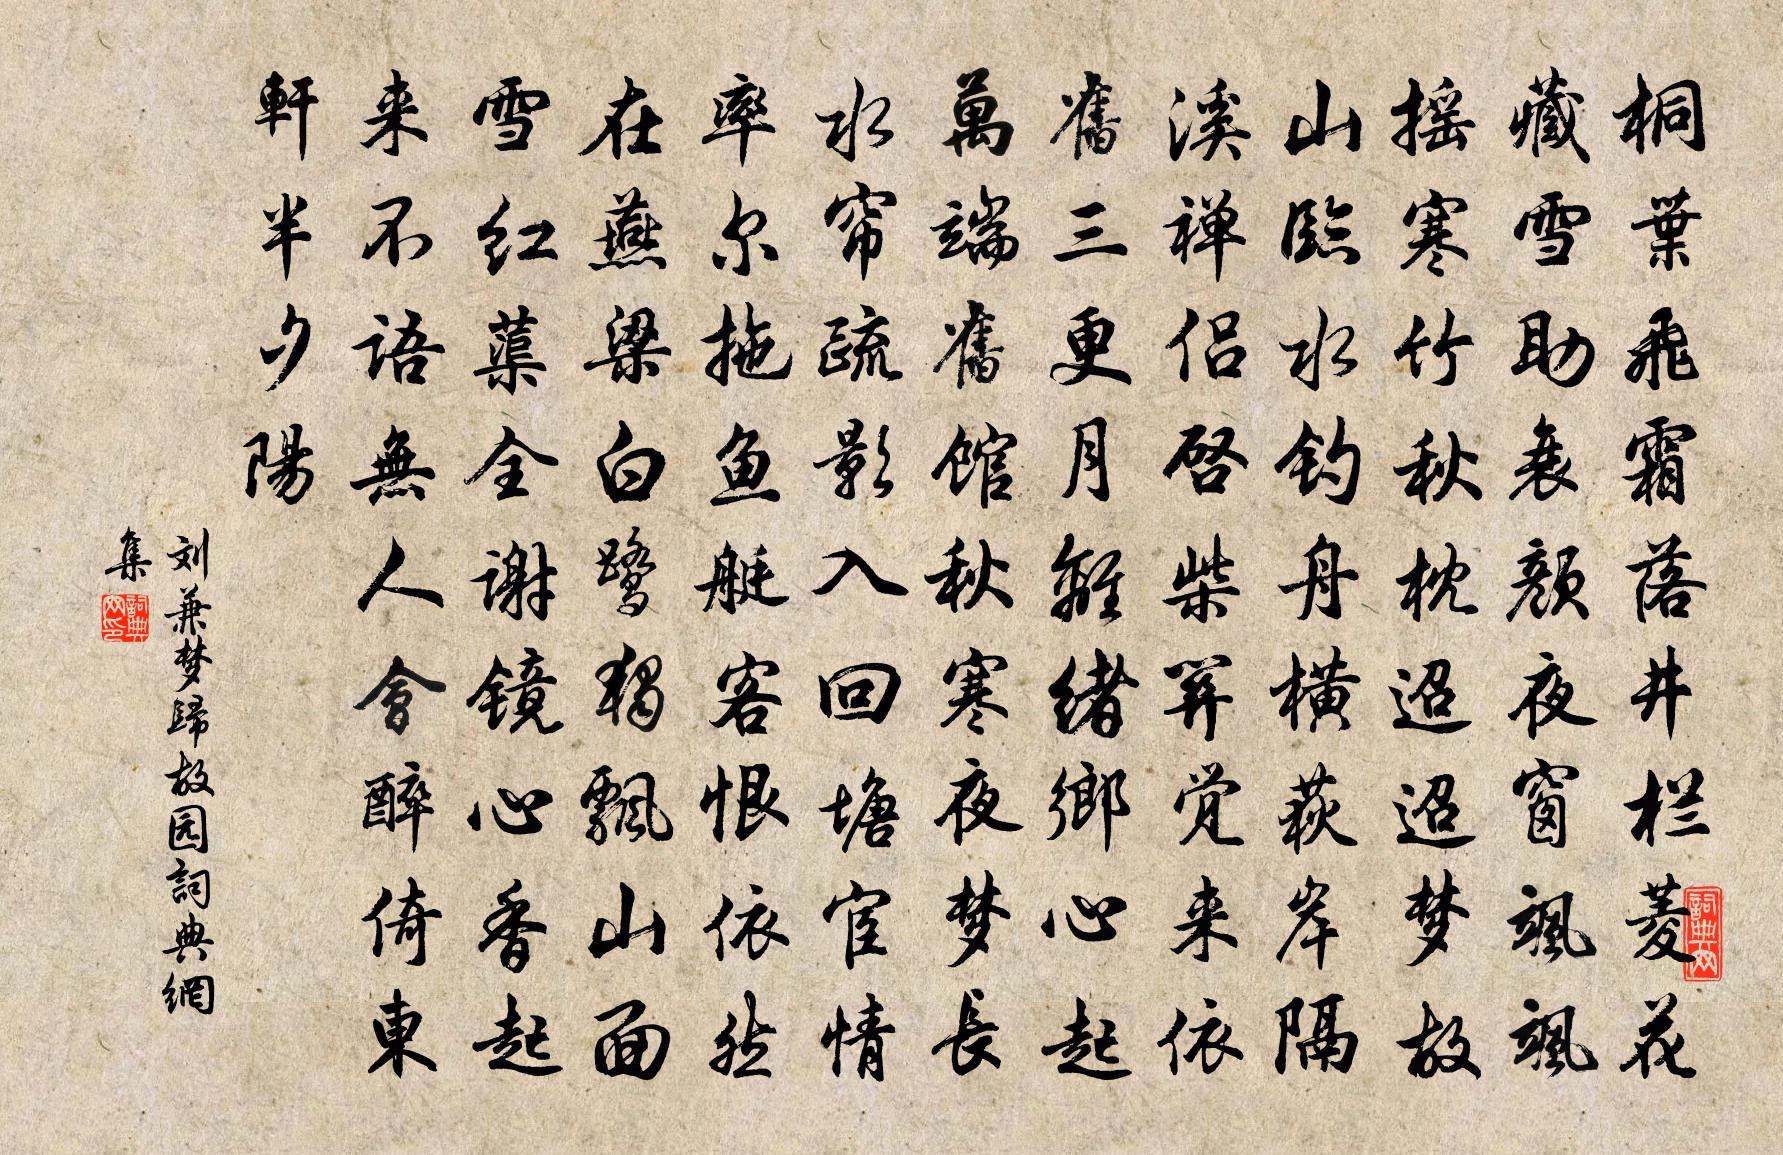 桐葉飛霜落井栏菱花
藏雪助衰颜夜窗飒飒
摇寒竹秋枕迢迢梦故
山臨水钓舟横荻岸隔
溪禅侣启柴関觉来依
舊三更月離绪鄉心起
萬端舊馆秋寒夜梦長
水帘疏影入回塘宦情
率尔拖鱼艇客恨依然
在燕梁白鹭独飄山面
雪红蕖全谢镜心香起
来不语無人會醉倚東
軒半夕陽
刘兼梦歸故园詞典網
集
詞典网
詞典网印